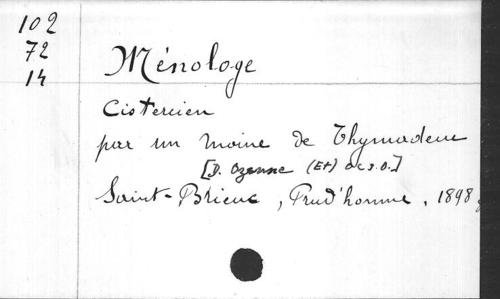 102
72
14
Ménologe
Cistercien
par un moine de Thymadeuc
[D. Ozanne (Et) O.C.S.O.]
Saint-Brieuc, Prud'homme, 1898